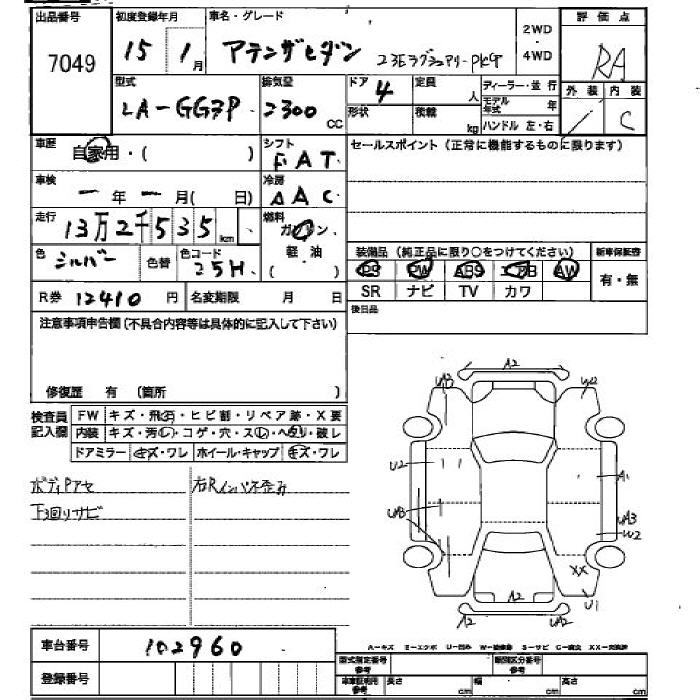 出品番号 初度登録年月 車名・グレード 2WD 評価点
7049 15 1月 アテンザセダン 23Eラグジュアリー-PKG 4WD RA
型式 排気量 ドア 定員 ディーラー・並行 外装 内装
LA-GG3P 2300cc 4 人 モデル年式 年 / C
形状 積載 kg ハンドル 左・右
車歴 自家用・( ) シフト FAT セールスポイント(正常に機能するものに限ります)
車検 ー年ー月( 日) 冷房 AAC
走行 13万2千535km 燃料 ガソリン
色 シルバー 色替 色コード 25H 軽・油 ( ) 装備品(純正品に限り○をつけてください) 新車保証書
PS PW ABS エアB AW 有・無
R券 12410円 名変期限 月 日 SR ナビ TV カワ
注意事項申告欄(不具合内容等は具体的に記入して下さい) 後日品
修復歴 有 (箇所 )
検査員記入欄 FW キズ・飛石・ヒビ割・リペア跡・X要
内装 キズ・汚レ・コゲ・穴・スレ・ヘタリ・破レ
ドアミラー キズ・ワレ ホイール・キャップ キズ・ワレ
ボディPアセ 右Rインパネ歪み
下回りサビ
A2
UA3 U2
U2 A1
UA3 UA3
W2
XX
A2 U1
A2 UA2
車台番号 102960
A-キズ E-エクボ U-凹み W-補修跡 S-サビ C-腐食 XX-交換済
登録番号 型式指定番号 参考 類別区分番号 参考
車庫証明用 参考 長さ cm 幅 cm 高さ cm